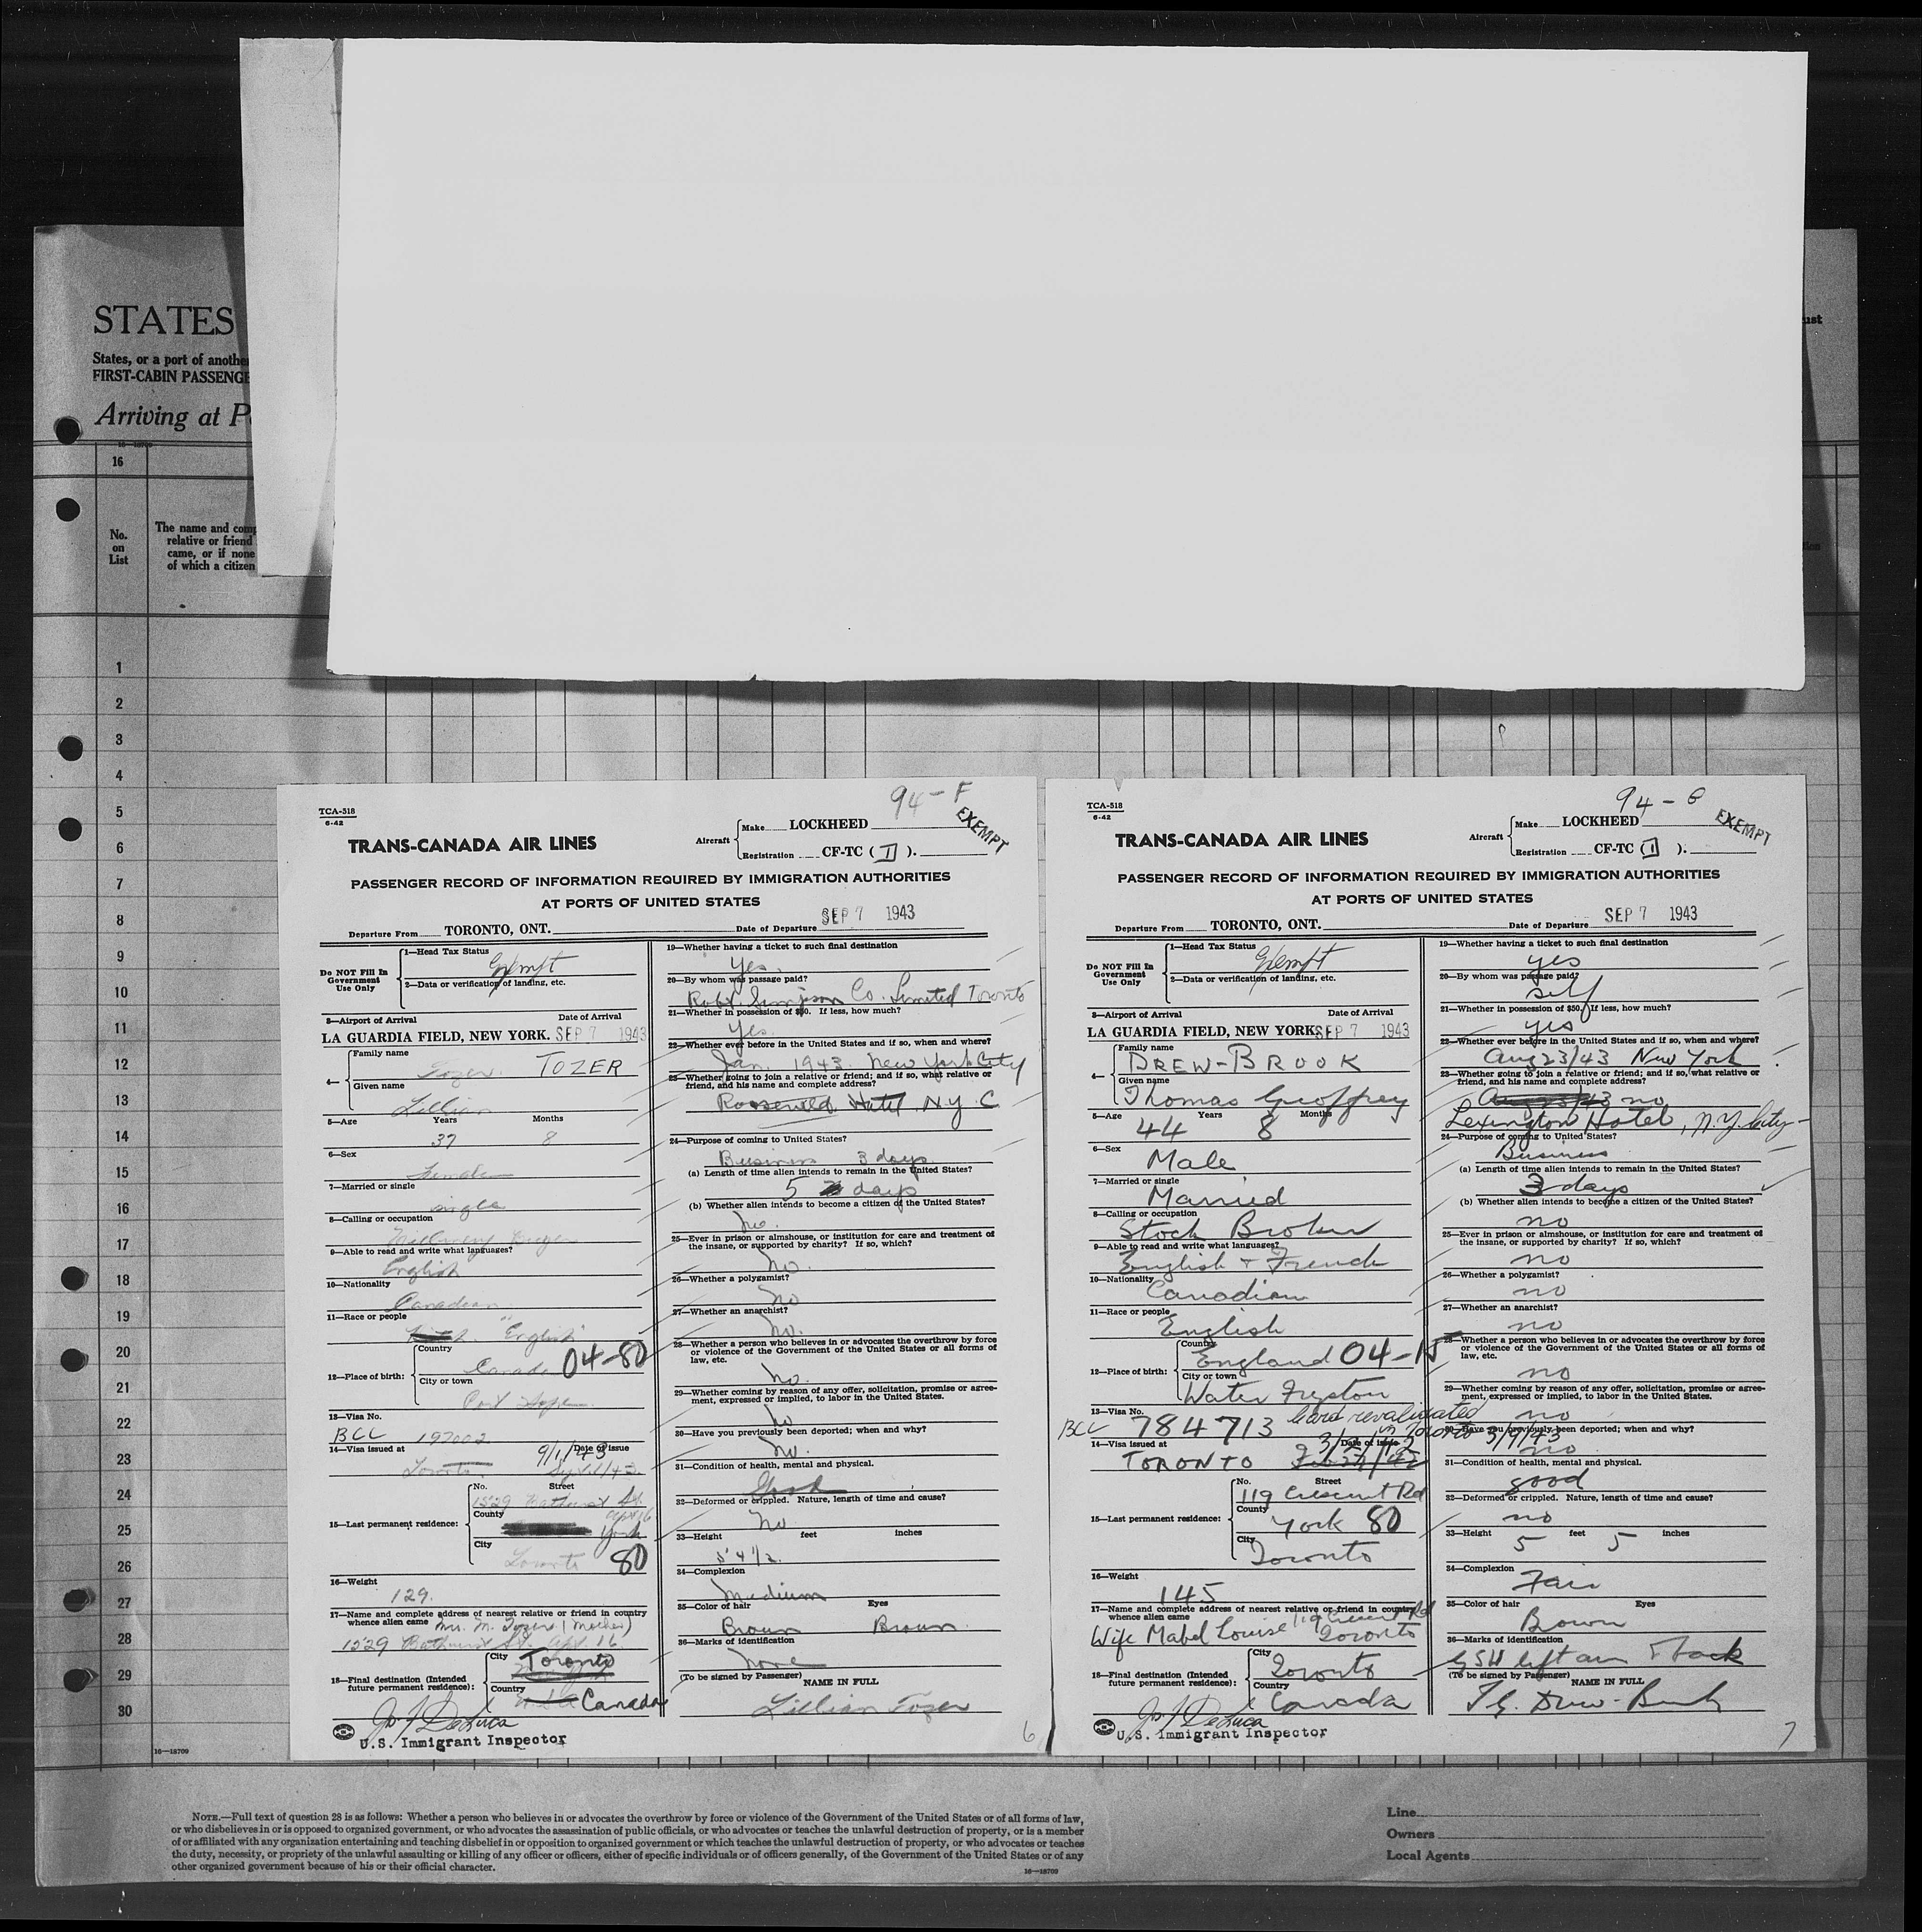 STATES
States, or a port of another
FIRST-CABIN PASSENGE
Arriving at P
16
No. on List
The name and comp
relative or friend
came, or if none
of which a citizen
ust
1
2
3
4
5
6
7
8
9
10
11
12
13
14
15
16
17
18
19
20
21
22
23
24
25
26
27
28
29
30
16—18709
94-F
TCA-518
6-42
TRANS-CANADA AIR LINES
Aircraft
Make LOCKHEED
Registration CF-TC (I).
EXEMPT
PASSENGER RECORD OF INFORMATION REQUIRED BY IMMIGRATION AUTHORITIES
AT PORTS OF UNITED STATES
Departure From TORONTO, ONT.
Date of Departure SEP 7 1943
Do NOT Fill In Government Use Only
1—Head Tax Status
Exempt
2—Data or verification of landing, etc.
3—Airport of Arrival Date of Arrival
LA GUARDIA FIELD, NEW YORK. SEP 7 1943
4— Family name
Tozer. TOZER
Given name
Lillian
5—Age Years Months
37 8
6—Sex
Female
7—Married or single
single
8—Calling or occupation
Millinery Buyer
9—Able to read and write what languages?
English
10—Nationality
Canadian
11—Race or people
"English"
12—Place of birth: Country
Canada 04-80
City or town
Port Hope
13—Visa No.
BCC 197002
14—Visa issued at Date of issue
Toronto 9/1/43
15—Last permanent residence: No. Street
1529 Bathurst St. apt 16
County
York
City
Toronto 80
16—Weight
129.
17—Name and complete address of nearest relative or friend in country whence alien came
Mrs. M. Tozer (Mother)
1529 Bathurst St. apt. 16
18—Final destination (Intended future permanent residence):
City Toronto
Country Canada
Jos. J DeLuca
U.S. Immigrant Inspector
19—Whether having a ticket to such final destination
Yes.
20—By whom was passage paid?
Robt. Simpson Co. Limited Toronto
21—Whether in possession of $50. If less, how much?
Yes.
22—Whether ever before in the United States and if so, when and where?
Jan. 1943. New York City
23—Whether going to join a relative or friend; and if so, what relative or friend, and his name and complete address?
Roosevelt Hotel N.Y.C
24—Purpose of coming to United States?
Business 3 days
(a) Length of time alien intends to remain in the United States?
5 days
(b) Whether alien intends to become a citizen of the United States?
No.
25—Ever in prison or almshouse, or institution for care and treatment of the insane, or supported by charity? If so, which?
No.
26—Whether a polygamist?
No
27—Whether an anarchist?
No.
28—Whether a person who believes in or advocates the overthrow by force or violence of the Government of the United States or all forms of law, etc.
No.
29—Whether coming by reason of any offer, solicitation, promise or agreement, expressed or implied, to labor in the United States.
No
30—Have you previously been deported; when and why?
No.
31—Condition of health, mental and physical.
Good
32—Deformed or crippled. Nature, length of time and cause?
No
33—Height feet inches
5' 4 1/2.
34—Complexion
Medium
35—Color of hair Eyes
Brown Brown.
36—Marks of identification
None
(To be signed by Passenger) NAME IN FULL
Lillian Tozer
6
94-G
TCA-518
6-42
TRANS-CANADA AIR LINES
Aircraft
Make LOCKHEED
Registration CF-TC (I).
EXEMPT
PASSENGER RECORD OF INFORMATION REQUIRED BY IMMIGRATION AUTHORITIES
AT PORTS OF UNITED STATES
Departure From TORONTO, ONT.
Date of Departure SEP 7 1943
Do NOT Fill In Government Use Only
1—Head Tax Status
Exempt
2—Data or verification of landing, etc.
3—Airport of Arrival Date of Arrival
LA GUARDIA FIELD, NEW YORK. SEP 7 1943
4— Family name
DREW-BROOK
Given name
Thomas Geoffrey
5—Age Years Months
44 8
6—Sex
Male
7—Married or single
Married
8—Calling or occupation
Stock Broker
9—Able to read and write what languages?
English + French
10—Nationality
Canadian
11—Race or people
English
12—Place of birth: Country
England 04-15
City or town
Water Fryston
13—Visa No.
BCC 784713 Card revalidated in Toronto 3/9/43
14—Visa issued at Date of issue
TORONTO 3/2/42
15—Last permanent residence: No. Street
119 Crescent Rd
County
York 80
City
Toronto
16—Weight
145
17—Name and complete address of nearest relative or friend in country whence alien came
Wife Mabel Louise 119 Crescent Rd Toronto
18—Final destination (Intended future permanent residence):
City Toronto
Country Canada
Jos. J DeLuca
U.S. Immigrant Inspector
19—Whether having a ticket to such final destination
yes
20—By whom was passage paid?
self
21—Whether in possession of $50. If less, how much?
yes
22—Whether ever before in the United States and if so, when and where?
Aug 23/43 New York
23—Whether going to join a relative or friend; and if so, what relative or friend, and his name and complete address?
Aug 23/43 no
Lexington Hotel, N.Y. City
24—Purpose of coming to United States?
Business
(a) Length of time alien intends to remain in the United States?
3 days
(b) Whether alien intends to become a citizen of the United States?
no
25—Ever in prison or almshouse, or institution for care and treatment of the insane, or supported by charity? If so, which?
no
26—Whether a polygamist?
no
27—Whether an anarchist?
no
28—Whether a person who believes in or advocates the overthrow by force or violence of the Government of the United States or all forms of law, etc.
no
29—Whether coming by reason of any offer, solicitation, promise or agreement, expressed or implied, to labor in the United States.
no
30—Have you previously been deported; when and why?
no
31—Condition of health, mental and physical.
good
32—Deformed or crippled. Nature, length of time and cause?
no
33—Height feet inches
5 5
34—Complexion
Fair
35—Color of hair Eyes
Brown
36—Marks of identification
GSW left arm & back
(To be signed by Passenger) NAME IN FULL
T.G. Drew-Brook
7
NOTE.—Full text of question 28 is as follows: Whether a person who believes in or advocates the overthrow by force or violence of the Government of the United States or of all forms of law,
or who disbelieves in or is opposed to organized government, or who advocates the assassination of public officials, or who advocates or teaches the unlawful destruction of property, or is a member
of or affiliated with any organization entertaining and teaching disbelief in or opposition to organized government or which teaches the unlawful destruction of property, or who advocates or teaches
the duty, necessity, or propriety of the unlawful assaulting or killing of any officer or officers, either of specific individuals or of officers generally, of the Government of the United States or of any
other organized government because of his or their official character.
16—18709
Line
Owners
Local Agents